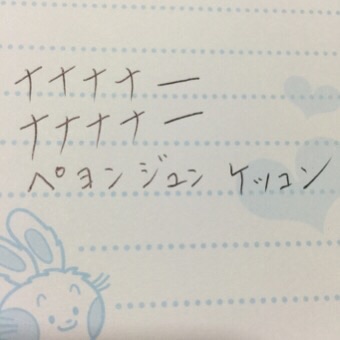 ナナナナー
ナナナナー
ペヨンジュン ケッコン